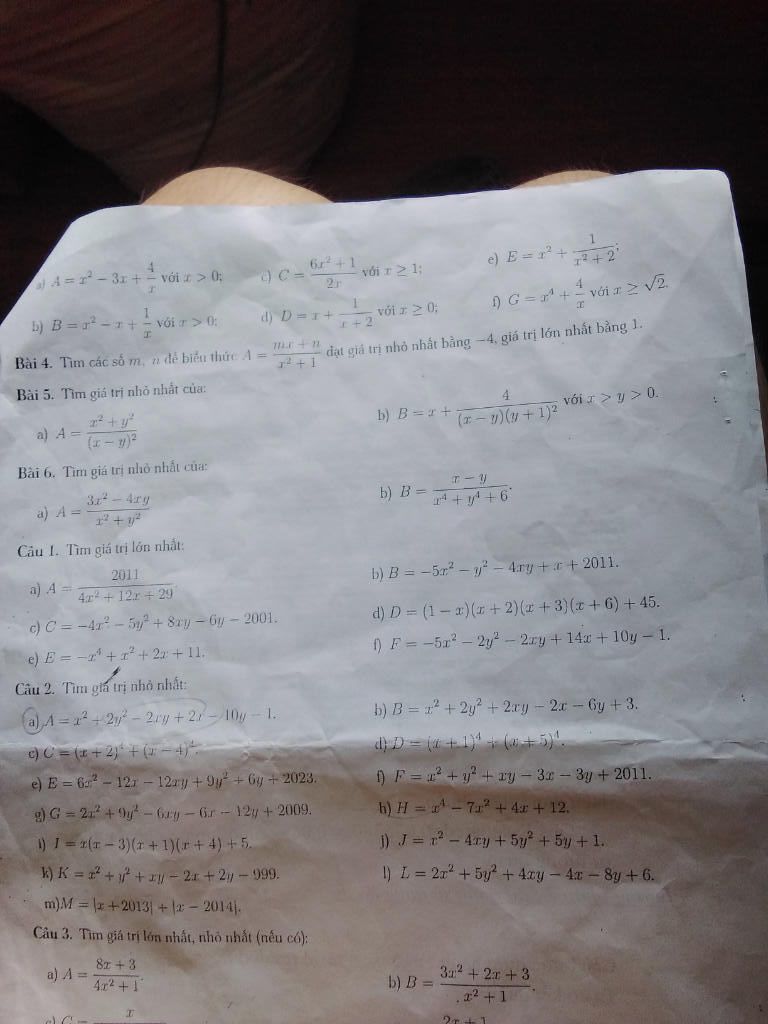 a) A = x² − 3x + 4/x với x > 0; c) C = (6x² + 1)/(2x) với x ≥ 1; e) E = x² + 1/(x² + 2);
b) B = x² − x + 1/x với x > 0; d) D = x + 1/(x + 2) với x ≥ 0; f) G = x⁴ + 4/x với x ≥ √2.
Bài 4. Tìm các số m, n để biểu thức A = (mx + n)/(x² + 1) đạt giá trị nhỏ nhất bằng −4, giá trị lớn nhất bằng 1.
Bài 5. Tìm giá trị nhỏ nhất của:
a) A = (x² + y²)/(x − y)² b) B = x + 4/((x − y)(y + 1)²) với x > y > 0.
Bài 6. Tìm giá trị nhỏ nhất của:
a) A = (3x² − 4xy)/(x² + y²) b) B = (x − y)/(x⁴ + y⁴ + 6).
Câu 1. Tìm giá trị lớn nhất:
a) A = 2011/(4x² + 12x + 29). b) B = −5x² − y² − 4xy + x + 2011.
c) C = −4x² − 5y² + 8xy − 6y − 2001. d) D = (1 − x)(x + 2)(x + 3)(x + 6) + 45.
e) E = −x⁴ + x² + 2x + 11. f) F = −5x² − 2y² − 2xy + 14x + 10y − 1.
Câu 2. Tìm giá trị nhỏ nhất:
a) A = x² + 2y² − 2xy + 2x − 10y − 1. b) B = x² + 2y² + 2xy − 2x − 6y + 3.
c) C = (x + 2)⁴ + (x − 4)⁴. d) D = (x + 1)⁴ + (x + 5)⁴.
e) E = 6x² − 12x − 12xy + 9y² + 6y + 2023. f) F = x² + y² + xy − 3x − 3y + 2011.
g) G = 2x² + 9y² − 6xy − 6x − 12y + 2009. h) H = x⁴ − 7x² + 4x + 12.
i) I = x(x − 3)(x + 1)(x + 4) + 5. j) J = x² − 4xy + 5y² + 5y + 1.
k) K = x² + y² + xy − 2x + 2y − 999. l) L = 2x² + 5y² + 4xy − 4x − 8y + 6.
m)M = |x + 2013| + |x − 2014|.
Câu 3. Tìm giá trị lớn nhất, nhỏ nhất (nếu có):
a) A = (8x + 3)/(4x² + 1). b) B = (3x² + 2x + 3)/(x² + 1).
c) C = x 2x + 1